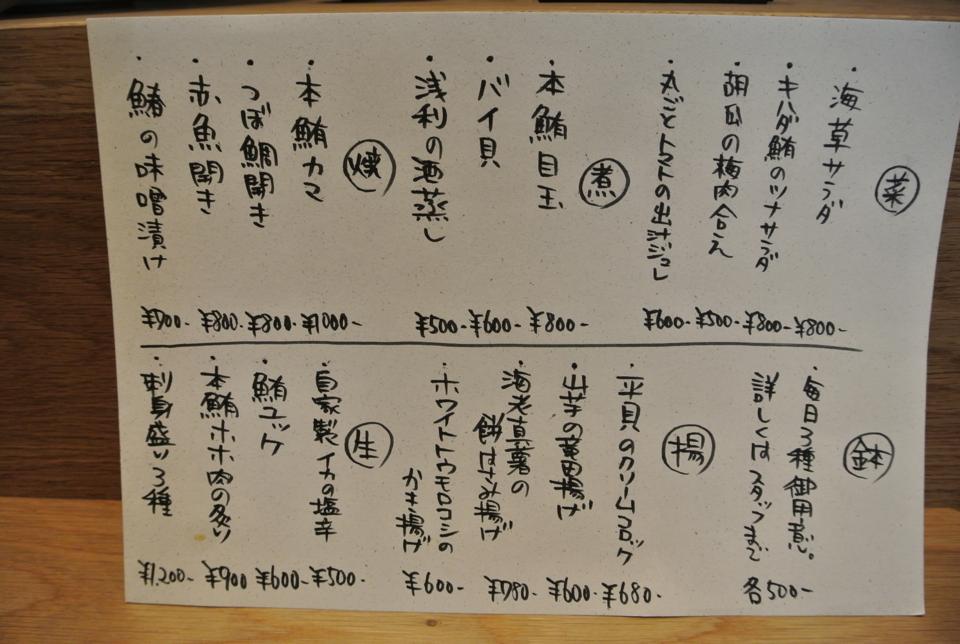 菜
・海草サラダ ¥800-
・キハダ鮪のツナサラダ ¥800-
・胡瓜の梅肉合え ¥500-
・丸ごとトマトの出汁ジュレ ¥600-
煮
・本鮪目玉 ¥800-
・バイ貝 ¥600-
・浅利の酒蒸し ¥500-
焼
・本鮪カマ ¥1000-
・つぼ鯛開き ¥800-
・赤魚開き ¥800-
・鰆の味噌漬け ¥700-
鉢
・毎日3種御用意。
詳しくはスタッフまで 各500-
揚
・平貝のクリームコロッケ ¥680-
・山芋の竜田揚げ ¥600-
・海老真薯の
餅はさみ揚げ ¥780-
・ホワイトトウモロコシの
かき揚げ ¥600-
生
・自家製イカの塩辛 ¥500-
・鮪ユッケ ¥600-
・本鮪ホホ肉の炙り ¥900
・刺身盛り3種 ¥1,200-